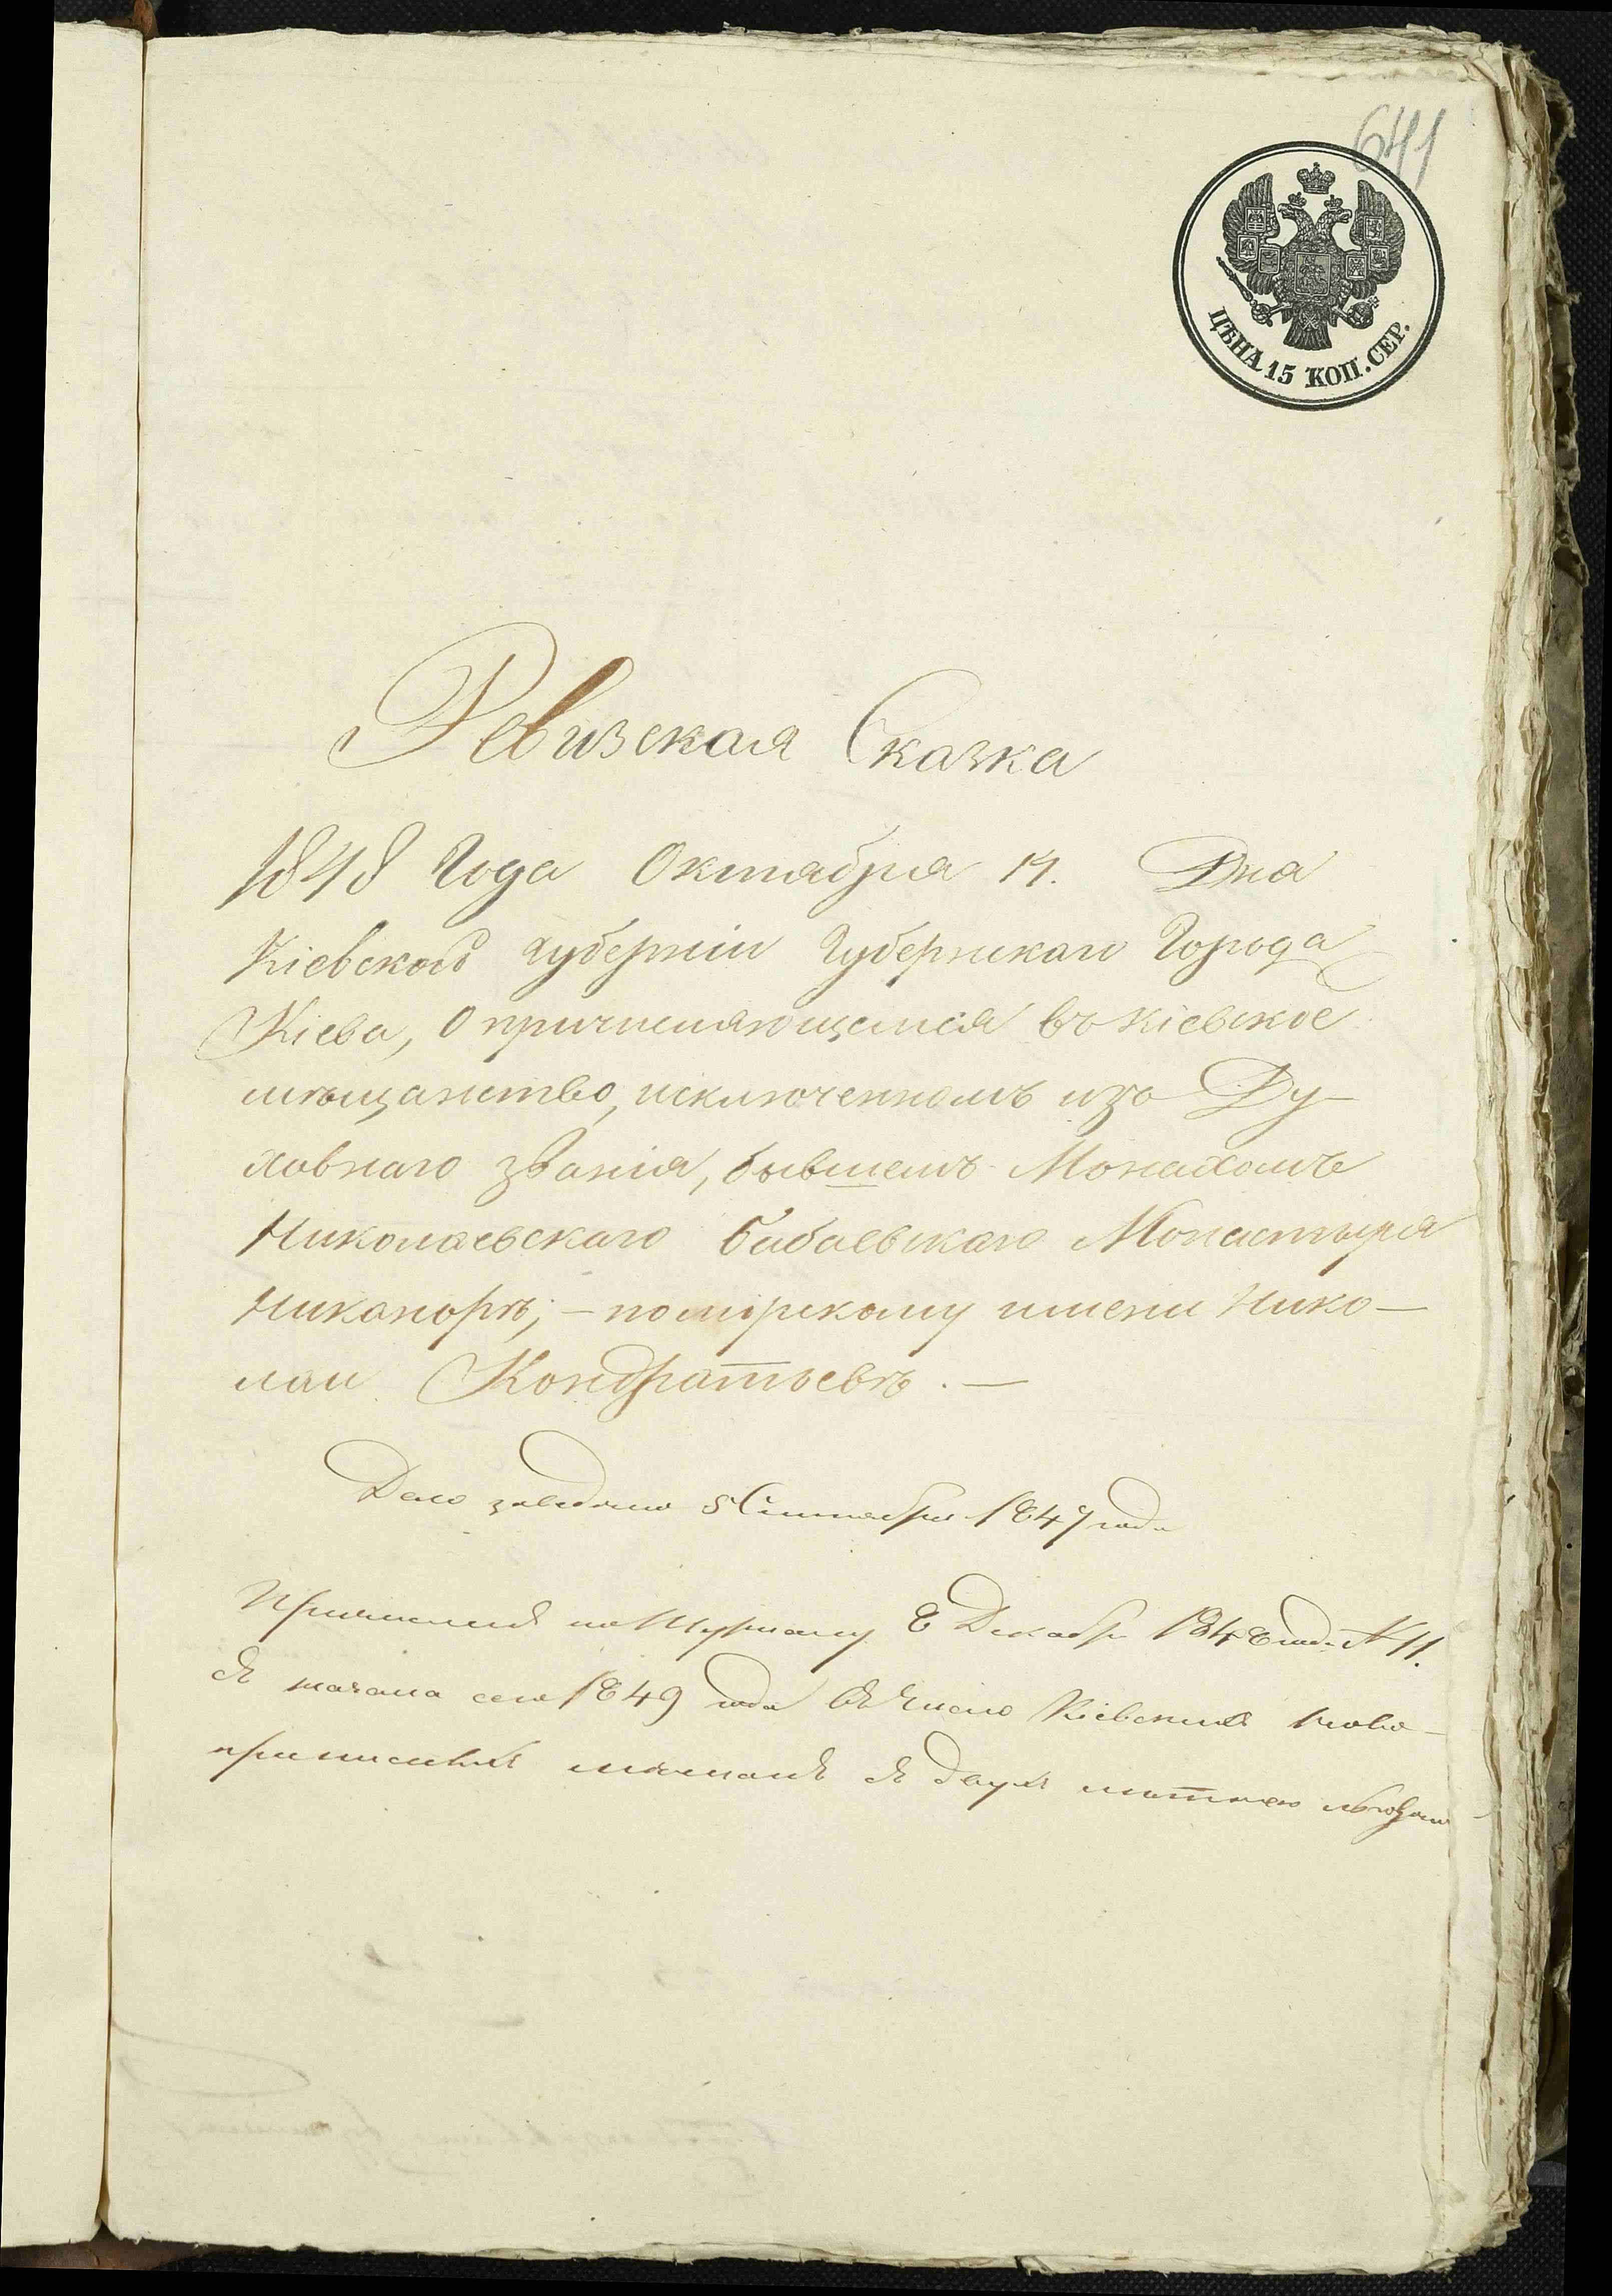 641
ЦѢНА 15 КОП. СЕР.
Ревизская Сказка
1848 Года Октября 14. Дня
Кіевской губерніи Губернскаго Города
Кіева, О причисляющемся въ кіевское
мѣщанство, исключенномъ изъ Ду-
ховнаго званія, бывшемъ Монахомъ
Николаевскаго Бабаевскаго Монастыря
Никаноръ; – по мірскому имени Нико-
лаи Кондратьевъ. —
Дело заведено 5 Сентября 1847 года
Причисленъ по Журналу 8 Декабр 1848 года N 11.
съ начала сего 1849 года въ число Кіевскихъ ново-
приписныхъ мѣщанъ съ двухъ льготою